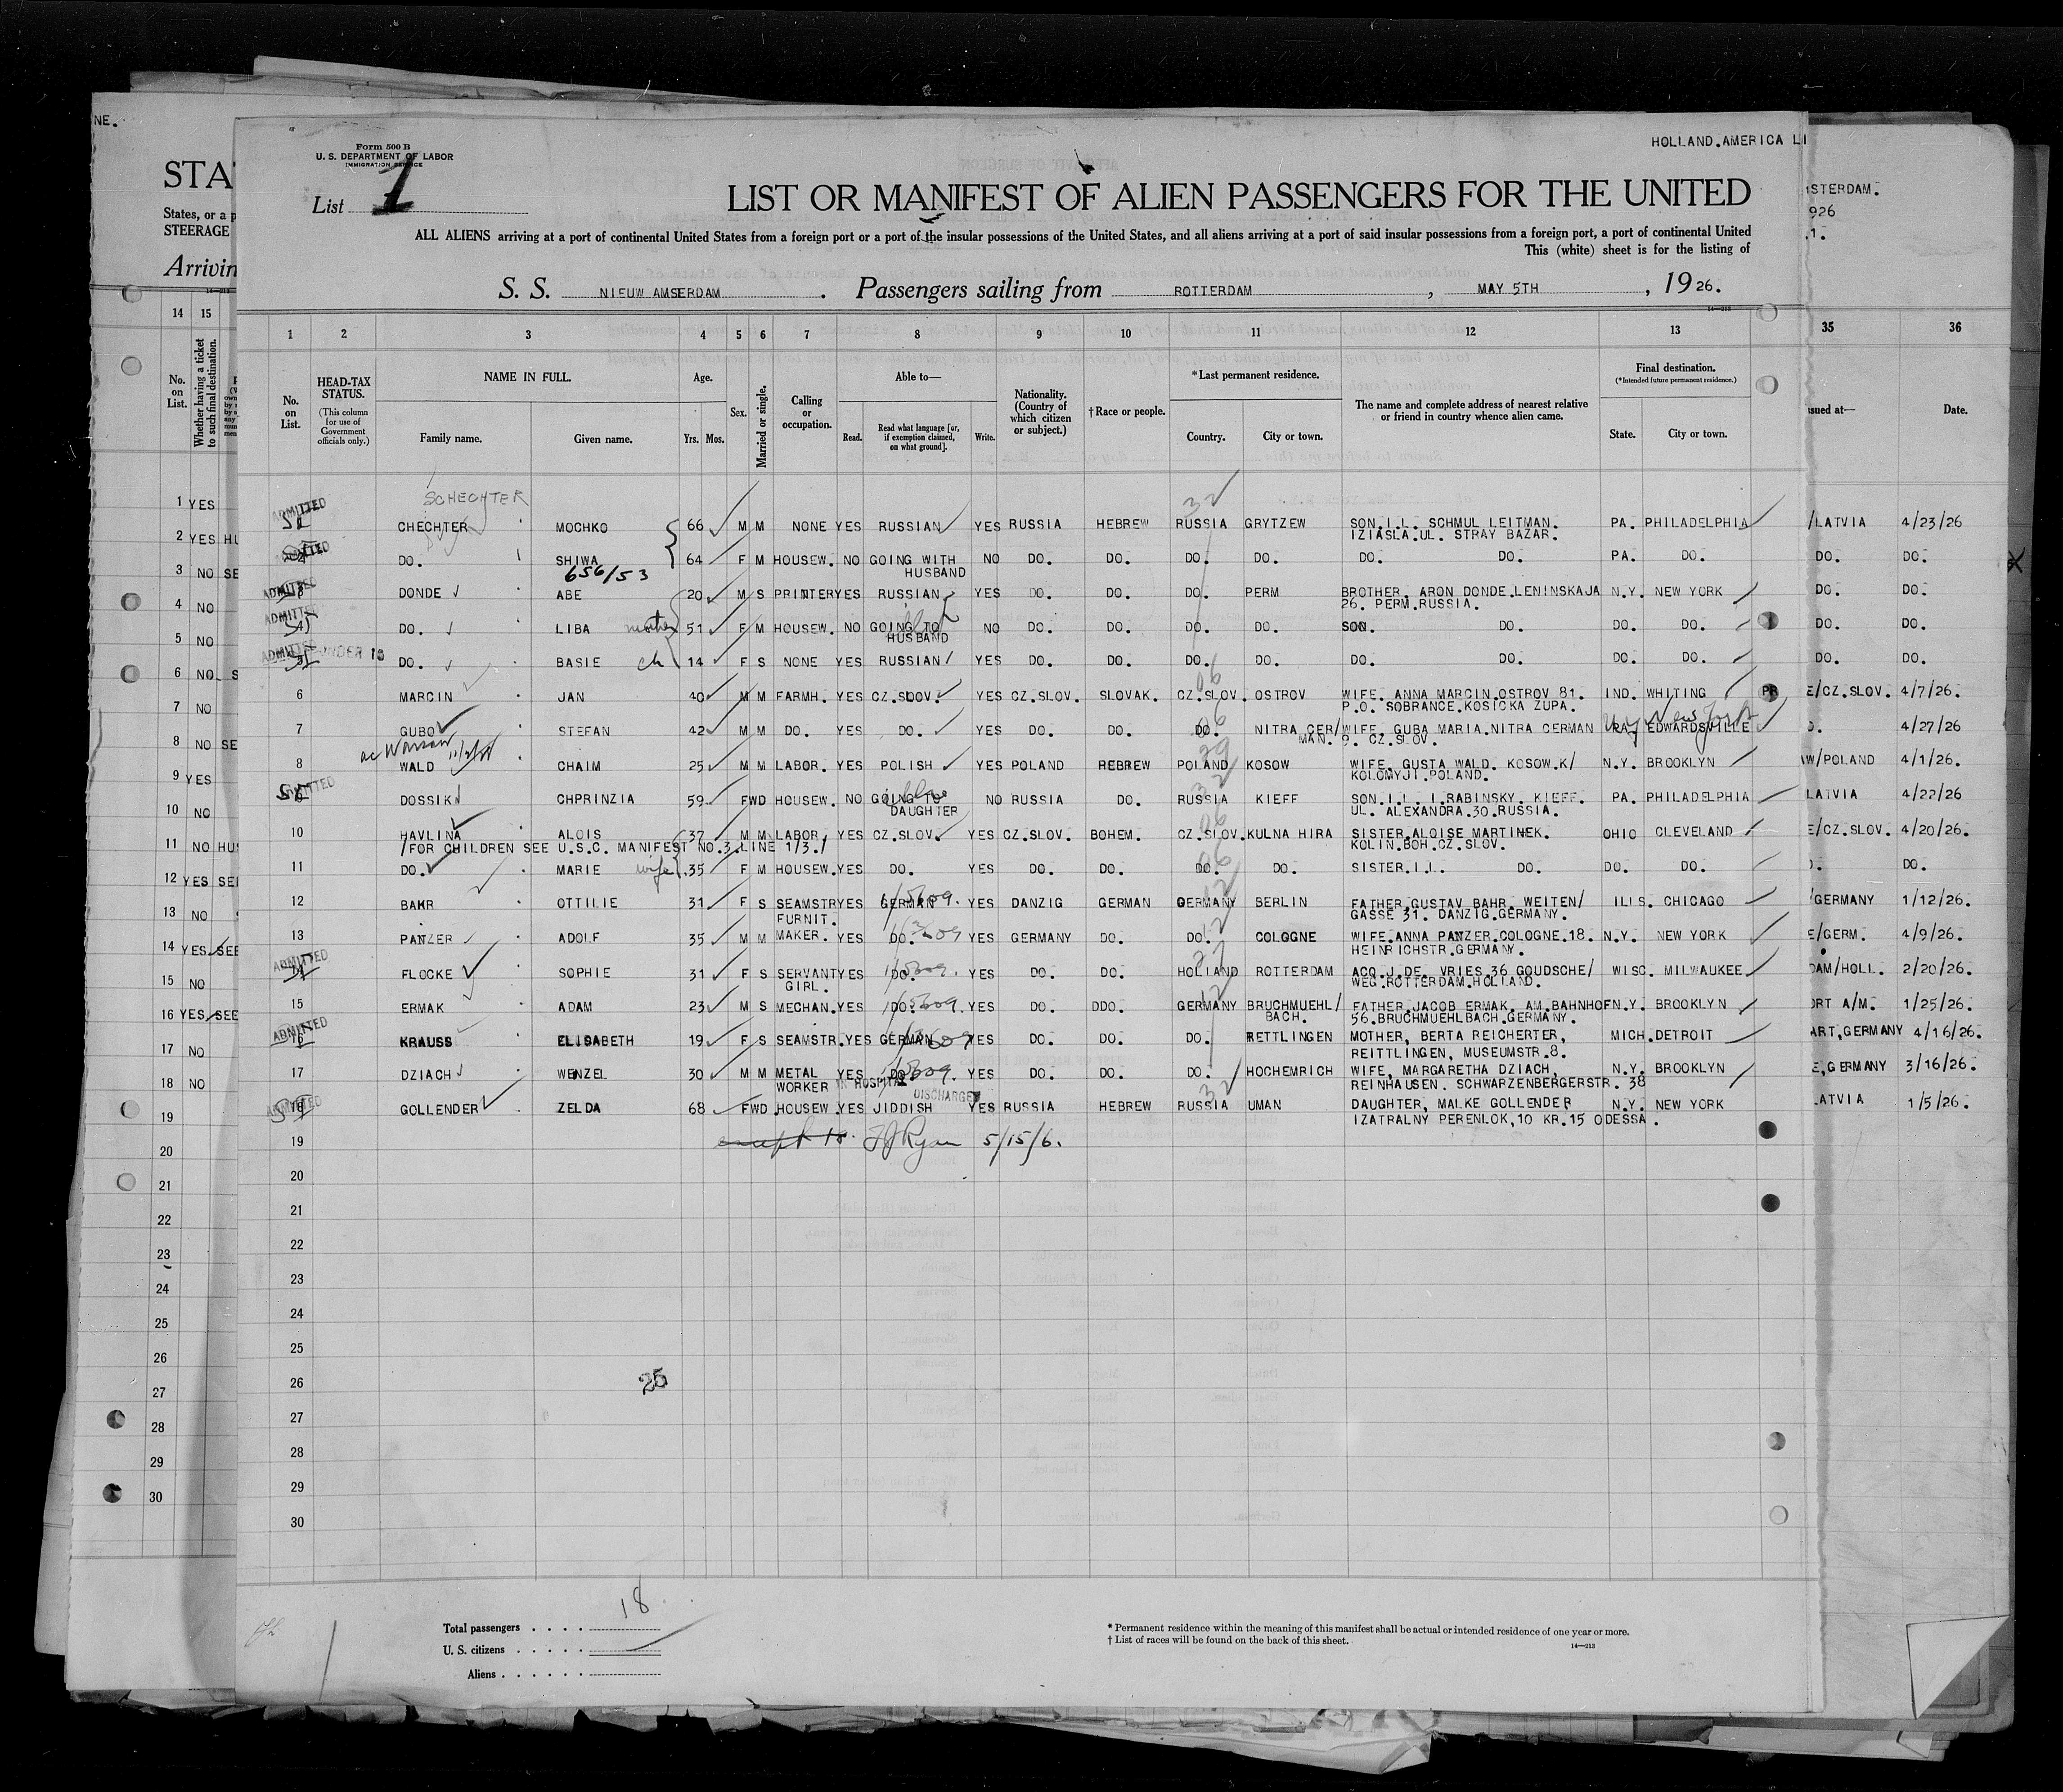 NE.
STA
States, or a p
STEERAGE
Arrivin
Form 500 B
U. S. DEPARTMENT OF LABOR
IMMIGRATION SERVICE
HOLLAND.AMERICA LI
List 1
LIST OR MANIFEST OF ALIEN PASSENGERS FOR THE UNITED
STERDAM.
926
.1.
ALL ALIENS arriving at a port of continental United States from a foreign port or a port of the insular possessions of the United States, and all aliens arriving at a port of said insular possessions from a foreign port, a port of continental United
This (white) sheet is for the listing of
S. S. NIEUW AMSERDAM . Passengers sailing from ROTTERDAM , MAY 5TH , 1926.
14 15 1 2 3 4 5 6 7 8 9 10 11 12 13 35 36
No. on List. Whether having a ticket to such final destination.
No. on List. HEAD-TAX STATUS. (This column for use of Government officials only.) NAME IN FULL. Family name. Given name. Age. Yrs. Mos. Sex. Married or single. Calling or occupation. Able to— Read. Read what language [or, if exemption claimed, on what ground]. Write. Nationality. (Country of which citizen or subject.) †Race or people. *Last permanent residence. Country. City or town. The name and complete address of nearest relative or friend in country whence alien came. Final destination. (*Intended future permanent residence.) State. City or town.
sued at— Date.
SCHECHTER
ADMITTED CHECHTER MOCHKO 66 M M NONE YES RUSSIAN YES RUSSIA HEBREW RUSSIA GRYTZEW SON.I.L. SCHMUL LEITMAN. PA. PHILADELPHIA /LATVIA 4/23/26
IZIASLA.UL. STRAY BAZAR.
DO. SHIWA 64 F M HOUSEW. NO GOING WITH NO DO. DO. DO. DO. DO. DO. PA. DO. DO. DO.
656/53 HUSBAND
ADMITTED DONDE ABE 20 M S PRINTER YES RUSSIAN YES DO. DO. DO. PERM BROTHER, ARON DONDE.LENINSKAJA N.Y. NEW YORK DO. DO.
26. PERM.RUSSIA.
ADMITTED DO. LIBA mother 51 F M HOUSEW. NO GOING TO NO DO. DO. DO. DO. SON. DO. DO. DO. DO. DO.
HUSBAND
ADMITTED UNDER 16 DO. BASIE ch 14 F S NONE YES RUSSIAN YES DO. DO. DO. DO. DO. DO. DO. DO. DO. DO.
6 MARCIN JAN 40 M M FARMH. YES CZ.SLOV. YES CZ.SLOV. SLOVAK. CZ.SLOV. OSTROV WIFE. ANNA MARCIN.OSTROV 81. IND. WHITING E/CZ.SLOV. 4/7/26.
P.O. SOBRANCE.KOSICKA ZUPA.
N.Y New York
7 GUBO STEFAN 42 M M DO. YES DO. YES DO. DO. DO. NITRA CER/ WIFE. GUBA MARIA.NITRA CERMAN PA. EDWARDSVILLE 4/27/26
MAN. P. CZ.SLOV.
8 WALD CHAIM 25 M M LABOR. YES POLISH YES POLAND HEBREW POLAND KOSOW WIFE. GUSTA WALD. KOSOW.K/ N.Y. BROOKLYN W/POLAND 4/1/26.
KOLOMYJI.POLAND.
ADMITTED DOSSIK CHPRINZIA 59 F WD HOUSEW. NO GOING TO NO RUSSIA DO. RUSSIA KIEFF SON.I.L. I.RABINSKY. KIEFF. PA. PHILADELPHIA LATVIA 4/22/26
DAUGHTER UL. ALEXANDRA.30.RUSSIA.
10 HAVLINA ALOIS 37 M M LABOR. YES CZ.SLOV. YES CZ.SLOV. BOHEM. CZ.SLOV. KULNA HIRA SISTER.ALOISE MARTINEK. OHIO CLEVELAND E/CZ.SLOV. 4/20/26.
/FOR CHILDREN SEE U.S.C. MANIFEST NO.3.LINE 1/3./ KOLIN.BOH.CZ.SLOV.
11 DO. MARIE wife 35 F M HOUSEW. YES DO. YES DO. DO. DO. DO. SISTER.I.L. DO. DO. DO. DO.
12 BAHR OTTILIE 31 F S SEAMSTR YES GERMAN YES DANZIG GERMAN GERMANY BERLIN FATHER.GUSTAV BAHR. WEITEN/ ILLS. CHICAGO /GERMANY 1/12/26.
GASSE 31. DANZIG.GERMANY.
FURNIT.
13 PANZER ADOLF 35 M M MAKER. YES DO. YES GERMANY DO. DO. COLOGNE WIFE.ANNA PANZER.COLOGNE.18. N.Y. NEW YORK E/GERM. 4/9/26.
HEINRICHSTR.GERMANY.
ADMITTED FLOCKE SOPHIE 31 F S SERVANT YES DO. YES DO. DO. HOLLAND ROTTERDAM ACQ.J.DE. VRIES.36 GOUDSCHE/ WISC. MILWAUKEE DAM/HOLL. 2/20/26.
GIRL. WEG.ROTTERDAM.HOLLAND.
15 ERMAK ADAM 23 M S MECHAN. YES DO. YES DO. DDO. GERMANY BRUCHMUEHL/ FATHER.JACOB ERMAK. AM.BAHNHOF N.Y. BROOKLYN ORT A/M. 1/25/26.
BACH. 56.BRUCHMUEHLBACH.GERMANY.
ADMITTED KRAUSS ELISABETH 19 F S SEAMSTR. YES GERMAN YES DO. DO. DO. RETTLINGEN MOTHER, BERTA REICHERTER, MICH. DETROIT ART,GERMANY 4/16/26.
REITTLINGEN, MUSEUMSTR.8.
17 DZIACH WENZEL 30 M M METAL YES DO. YES DO. DO. DO. HOCHEMRICH WIFE, MARGARETHA DZIACH, N.Y. BROOKLYN E,GERMANY 3/16/26.
WORKER IN HOSPITAL REINHAUSEN. SCHWARZENBERGERSTR. 38
DISCHARGED
ADMITTED GOLLENDER ZELDA 68 F WD. HOUSEW. YES JIDDISH YES RUSSIA HEBREW RUSSIA UMAN DAUGHTER, MALKE GOLLENDER N.Y. NEW YORK LATVIA 1/5/26.
IZATRALNY PERENLOK,10 KR.15 ODESSA.
19 except 18. JJ Ryan 5/15/6.
20
21
22
23
24
25
26
25
27
28
29
30
18
Total passengers
U. S. citizens
Aliens
* Permanent residence within the meaning of this manifest shall be actual or intended residence of one year or more.
† List of races will be found on the back of this sheet.
14—213